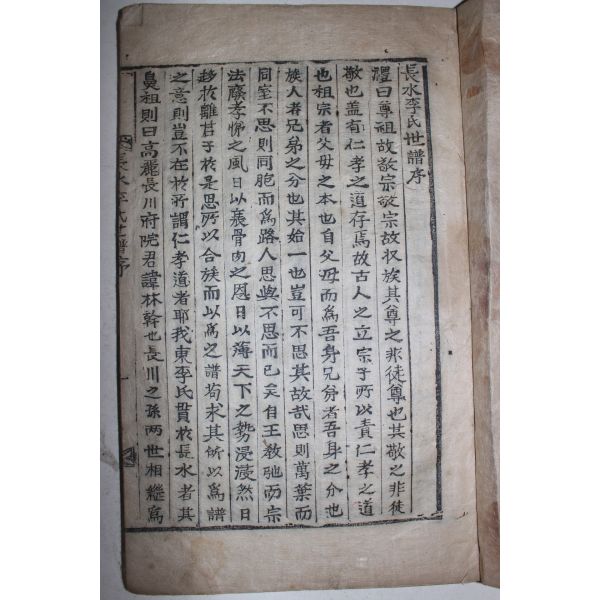 長水李氏世譜序
禮曰尊祖故敬宗敬宗故収族其尊之非徒尊也其敬之非徒
敬也盖有仁孝之道存焉故古人之立宗子所以責仁孝之道
也祖宗者父母之本也自父母而爲吾身兄弟者吾身之分也
族人者兄弟之分也其始一也豈可不思其故哉思則萬葉而
同室不思則同胞而爲路人思與不思而已矣自王教弛而宗
法廢孝悌之風日以衰骨肉之恩日以薄天下之勢浸漫然日
移於難君子於是思所以合族而以爲之譜苟求其所以爲譜
之意則豈不在於所謂仁孝道者耶我東李氏貫於長水者其
鼻祖則曰高麗長川府院君諱林幹也長川之孫兩世相繼寫
長水李氏世譜序
一